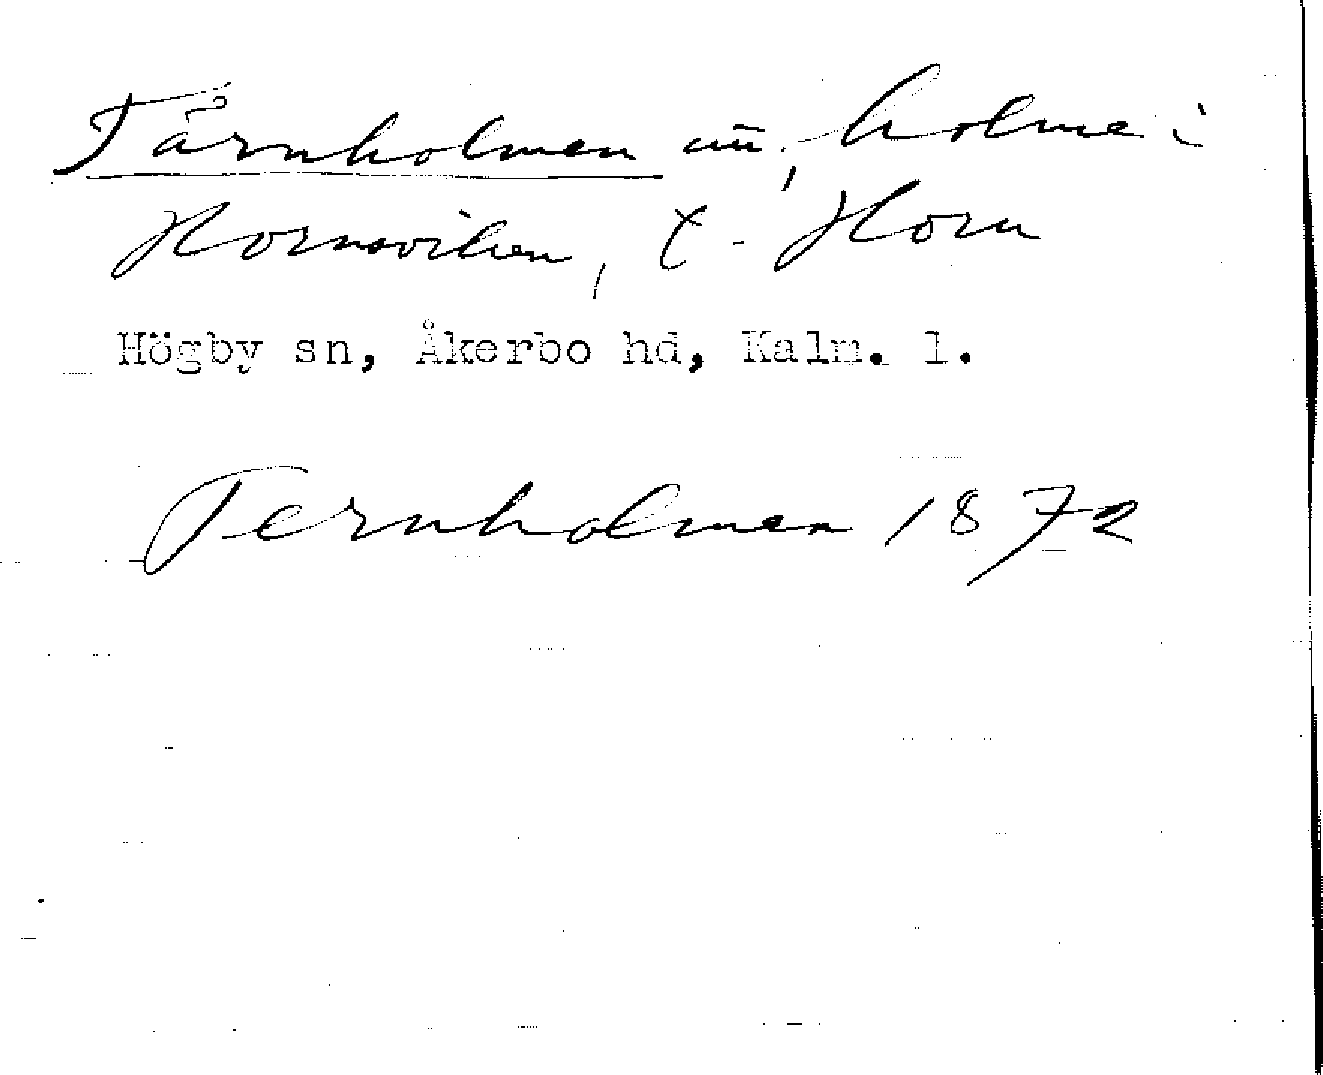 Tärnholmen nu, holme i
Hornsviken, t. Horn
Högby sn, Åkerbo hd, Kalm. l.
Ternholmen 1872